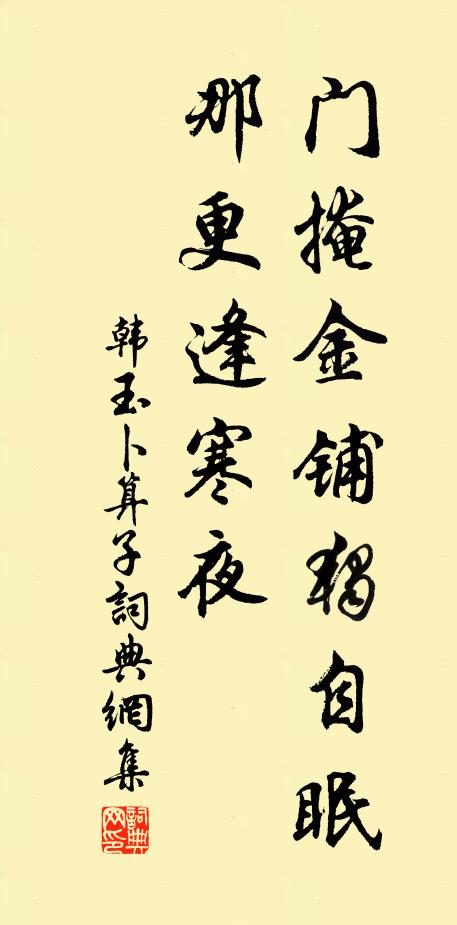 门掩金铺独自眠
那更逢寒夜
韩玉卜算子詞典網集
詞典网印